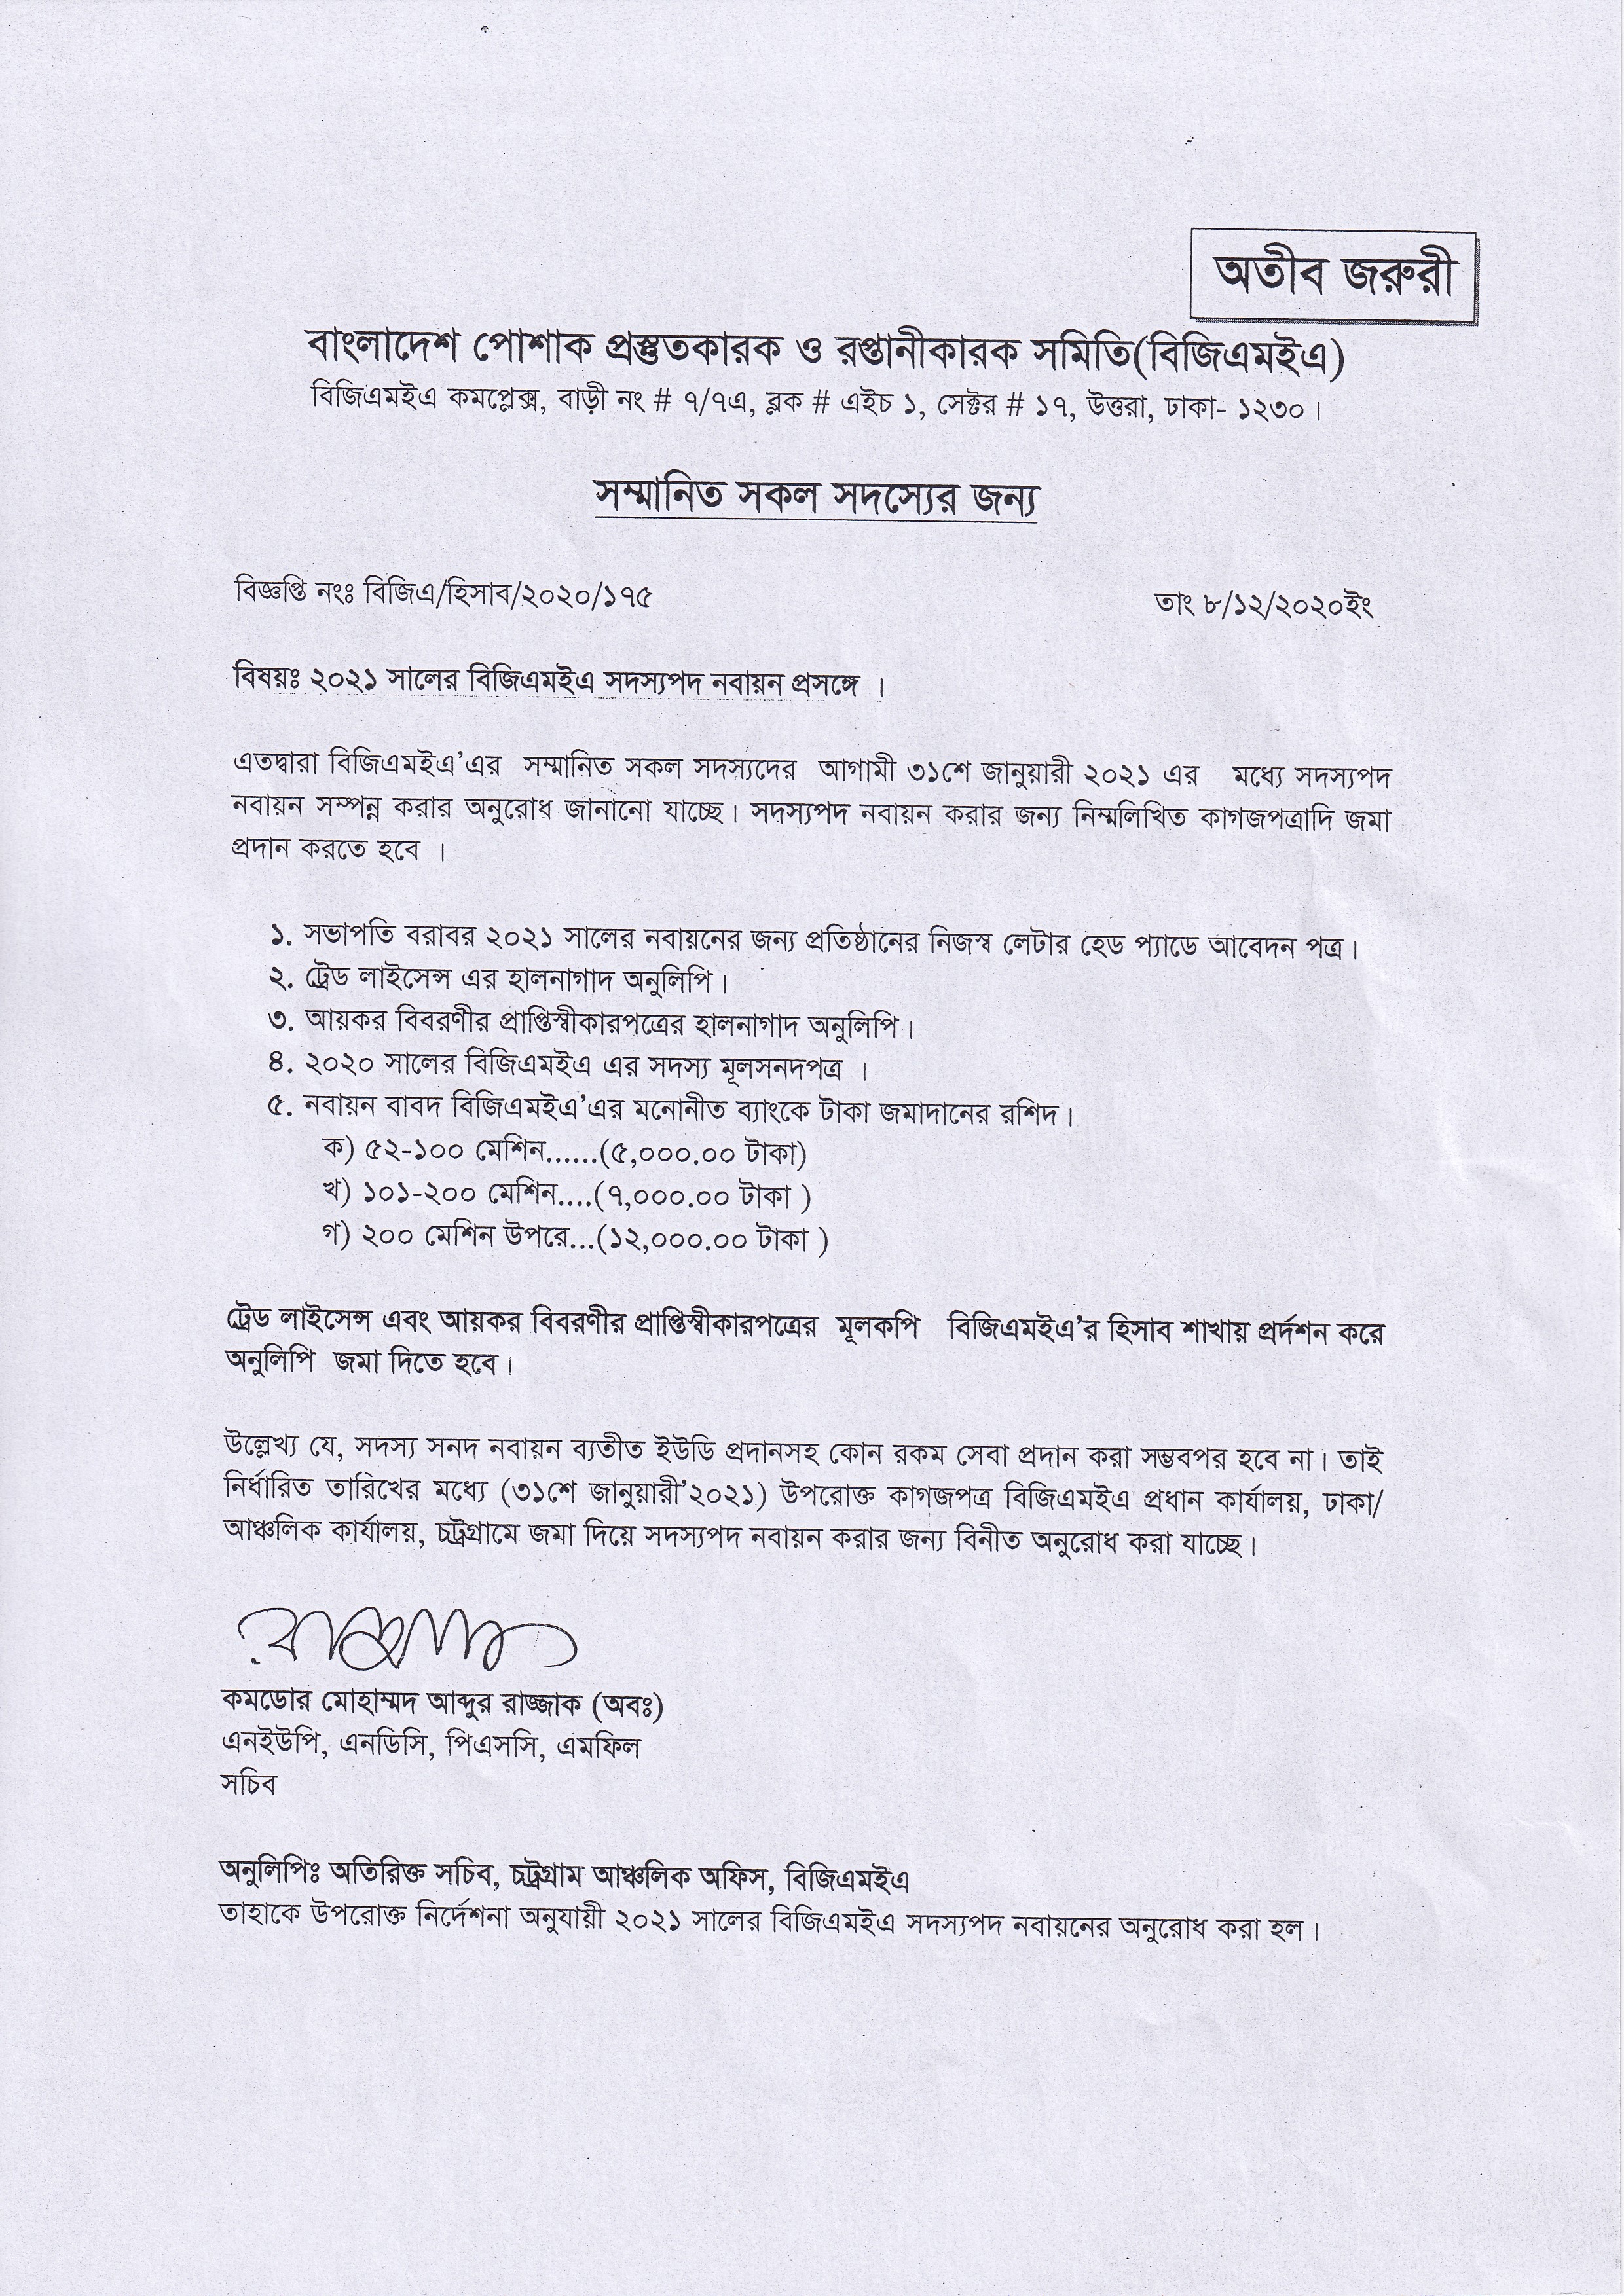 অতীব জরুরী
বাংলাদেশ পোশাক প্রস্তুতকারক ও রপ্তানীকারক সমিতি(বিজিএমইএ)
বিজিএমইএ কমপ্লেক্স, বাড়ী নং # ৭/৭এ, ব্লক # এইচ ১, সেক্টর # ১৭, উত্তরা, ঢাকা- ১২৩০।
সম্মানিত সকল সদস্যের জন্য
বিজ্ঞপ্তি নংঃ বিজিএ/হিসাব/২০২০/১৭৫ তাং ৮/১২/২০২০ইং
বিষয়ঃ ২০২১ সালের বিজিএমইএ সদস্যপদ নবায়ন প্রসঙ্গে ।
এতদ্বারা বিজিএমইএ'এর সম্মানিত সকল সদস্যদের আগামী ৩১শে জানুয়ারী ২০২১ এর মধ্যে সদস্যপদ
নবায়ন সম্পন্ন করার অনুরোধ জানানো যাচ্ছে। সদস্যপদ নবায়ন করার জন্য নিম্মলিখিত কাগজপত্রাদি জমা
প্রদান করতে হবে ।
১. সভাপতি বরাবর ২০২১ সালের নবায়নের জন্য প্রতিষ্ঠানের নিজস্ব লেটার হেড প্যাডে আবেদন পত্র।
২. ট্রেড লাইসেন্স এর হালনাগাদ অনুলিপি।
৩. আয়কর বিবরণীর প্রাপ্তিস্বীকারপত্রের হালনাগাদ অনুলিপি।
৪. ২০২০ সালের বিজিএমইএ এর সদস্য মূলসনদপত্র ।
৫. নবায়ন বাবদ বিজিএমইএ'এর মনোনীত ব্যাংকে টাকা জমাদানের রশিদ।
ক) ৫২-১০০ মেশিন......(৫,০০০.০০ টাকা)
খ) ১০১-২০০ মেশিন....(৭,০০০.০০ টাকা )
গ) ২০০ মেশিন উপরে...(১২,০০০.০০ টাকা )
ট্রেড লাইসেন্স এবং আয়কর বিবরণীর প্রাপ্তিস্বীকারপত্রের মূলকপি বিজিএমইএ'র হিসাব শাখায় প্রর্দশন করে
অনুলিপি জমা দিতে হবে।
উল্লেখ্য যে, সদস্য সনদ নবায়ন ব্যতীত ইউডি প্রদানসহ কোন রকম সেবা প্রদান করা সম্ভবপর হবে না। তাই
নির্ধারিত তারিখের মধ্যে (৩১শে জানুয়ারী'২০২১) উপরোক্ত কাগজপত্র বিজিএমইএ প্রধান কার্যালয়, ঢাকা/
আঞ্চলিক কার্যালয়, চট্রগ্রামে জমা দিয়ে সদস্যপদ নবায়ন করার জন্য বিনীত অনুরোধ করা যাচ্ছে।
কমডোর মোহাম্মদ আব্দুর রাজ্জাক (অবঃ)
এনইউপি, এনডিসি, পিএসসি, এমফিল
সচিব
অনুলিপিঃ অতিরিক্ত সচিব, চট্রগ্রাম আঞ্চলিক অফিস, বিজিএমইএ
তাহাকে উপরোক্ত নির্দেশনা অনুযায়ী ২০২১ সালের বিজিএমইএ সদস্যপদ নবায়নের অনুরোধ করা হল।